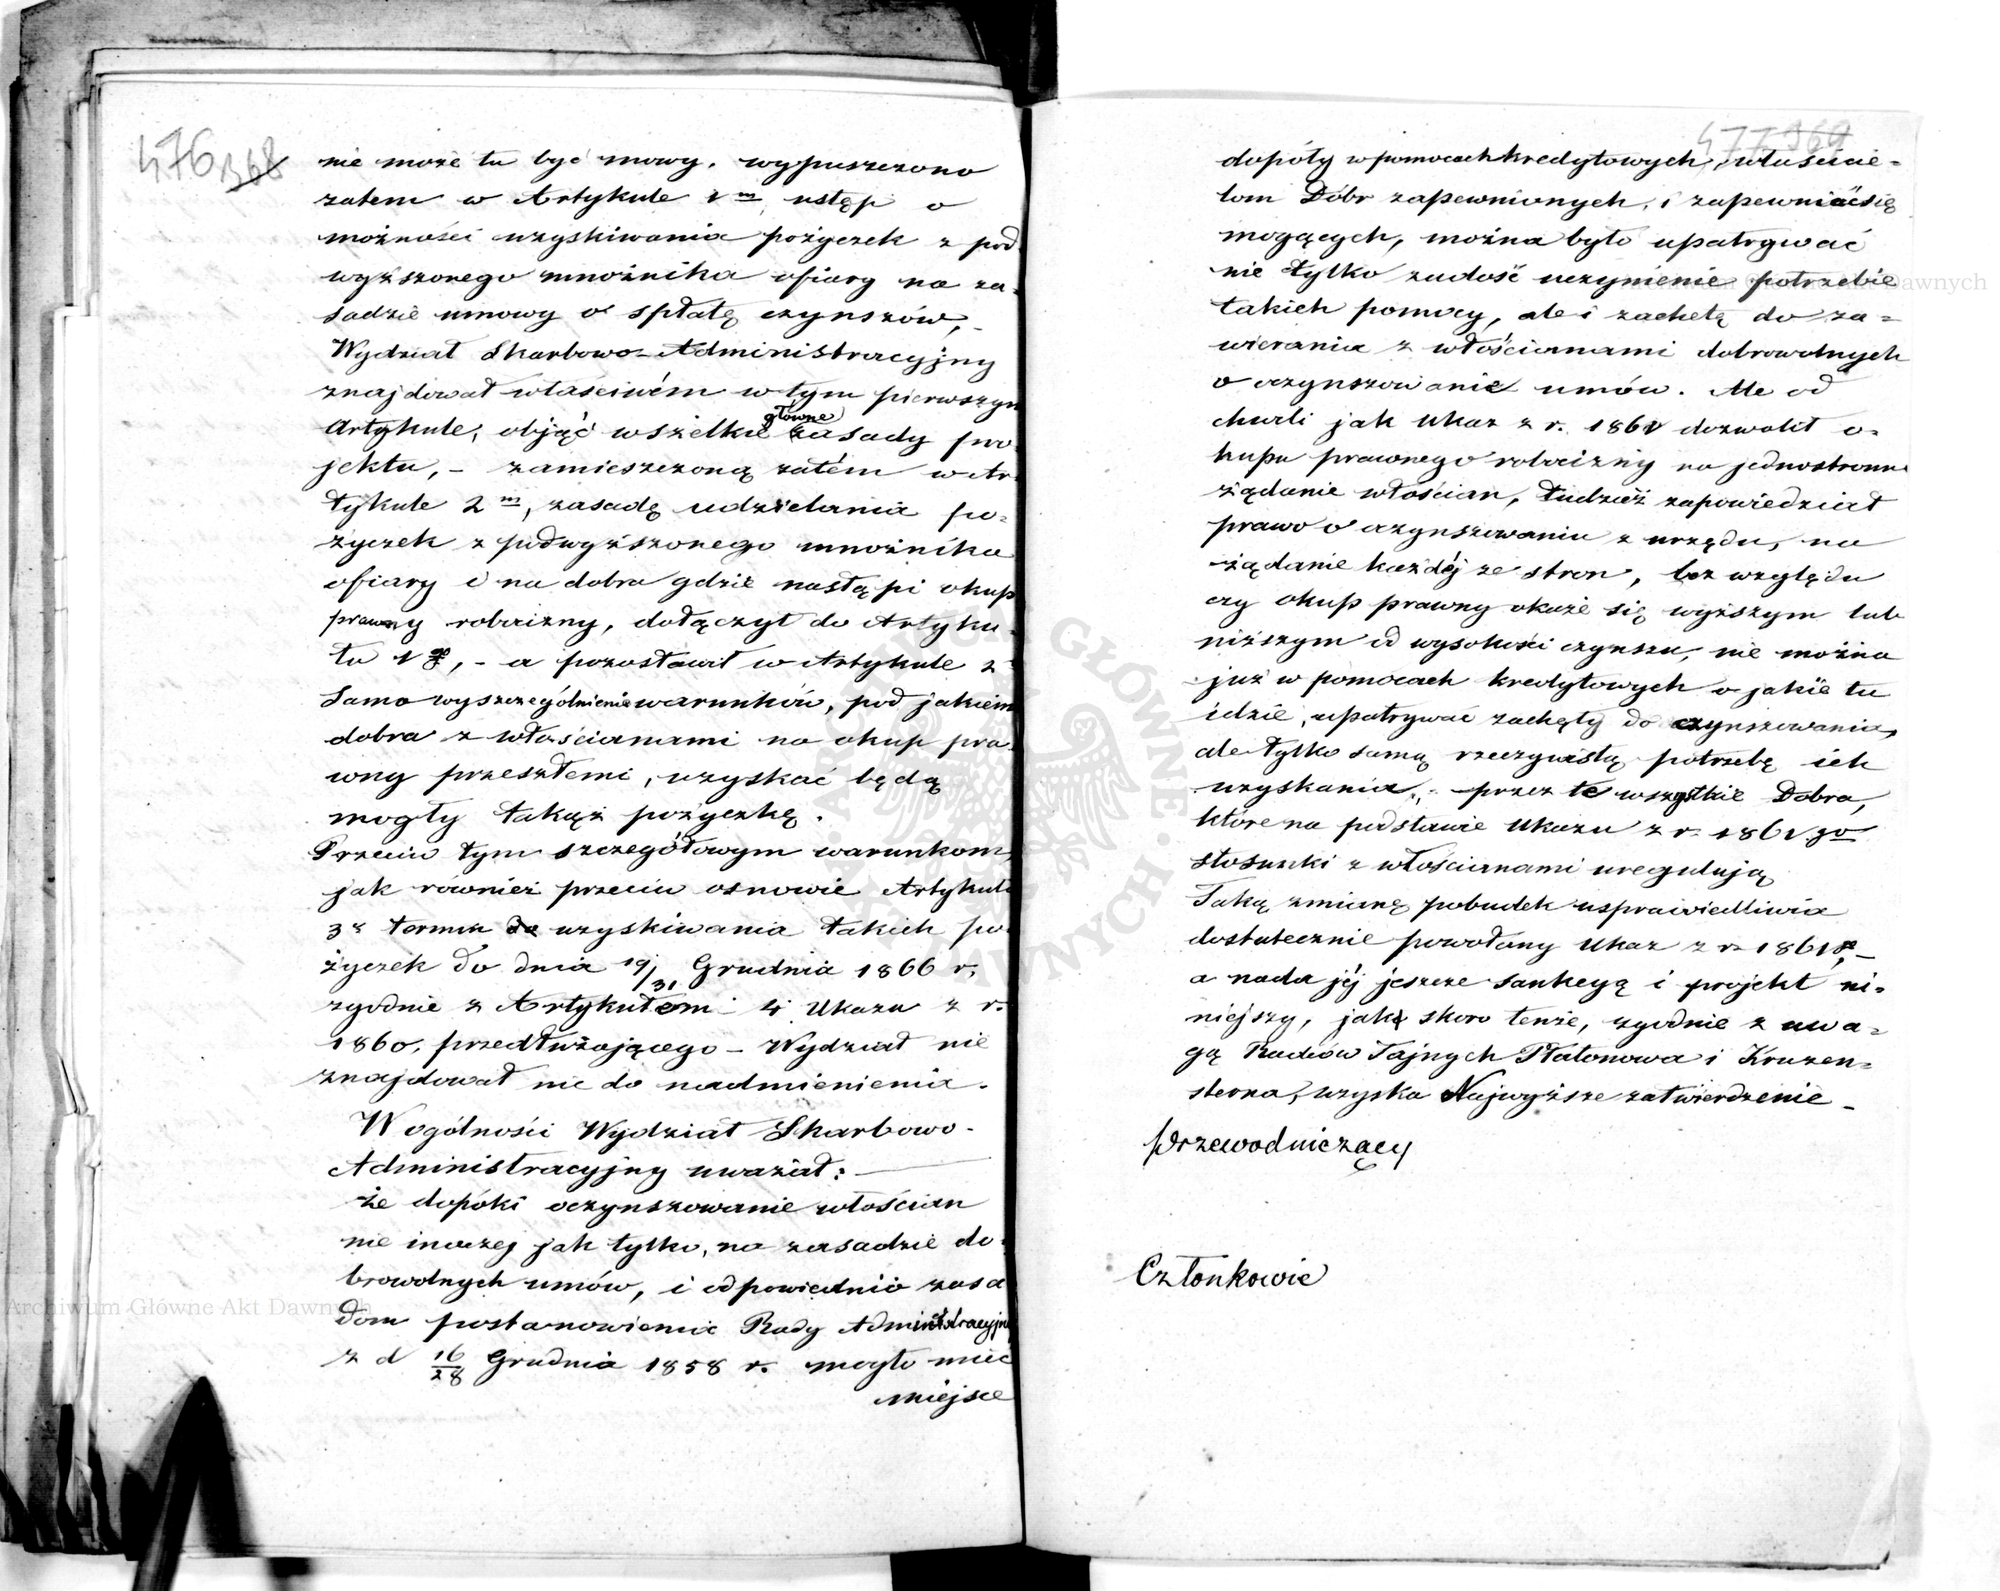 476 368
nie może tu być mowy. wypuszczono
zatem w Artykule 1m ustęp o
możności uzyskiwania pożyczek z pod
wyższonego mnożnika ofiary na za-
sadzie umowy o spłatę czynszów, -
Wydział Skarbowo-Administracyjny
znajdował właściwém w tym pierwszym
Artykule, objąć wszelkie główne zasady pro
jektu, - zamieszczoną zatém w Ar
tykule 2m, zasadę udzielania po-
życzek z podwyższonego mnożnika
ofiary i na dobra gdzie nastąpi okup
prawny robocizny, dołączył do Artyku-
łu 1go, - a pozostawił w Artykule 2
samo wyszczególnienie warunków, pod jakiemi
dobra z włościanami na okup pra
wny przeszłemi, uzyskać będą
mogły takąż pożyczkę.
Przeciw tym szczegółowym warunkom,
jak również przeciw osnowie Artykułu
3 termin do uzyskiwania takich po
życzek do dnia 19/31 Grudnia 1866 r,
zgodnie z Artykułem 4 Ukazu z r.
1860. przedłużającego - Wydział nie
znajdował nic do nadmienienia.
W ogólności Wydział Skarbowo-
Administracyjny uważał:
że dopóki oczynszowanie włościan
nie inaczej jak tylko, na zasadzie do-
browolnych umów, i odpowiednio zasa
dom postanowienia Rady Administracyjnej
z d 16/28 Grudnia 1858 r. mogło mieć
miejsce
477 369
dopóty w pomocach kredytowych, właścicie-
lom Dóbr zapewnionych, i zapewnić się
mogących, można było upatrywać
nie tylko zadość uczynienie potrzebie
takich pomocy, ale i zachętę do za-
wierania z włościanami dobrowolnych
o oczynszowanie umów. Ale od
chwili jak Ukaz z r. 1861 dozwolił o-
kupu prawnego robocizny na jednostronne
żądanie włościan, tudzież zapowiedział
prawo o oczynszowaniu z urzędu, na
żądanie każdéj ze stron, bez względu
czy okup prawny okaże się wyższym lub
niższym od wysokości czynszu, nie można
już w pomocach kredytowych o jakie tu
idzie, upatrywać zachęty do oczynszowania,
ale tylko samą rzeczywistą potrzebę ich
uzyskania, - przez te wszystkie Dobra,
które na podstawie Ukazu z r. 1861 go
stosunki z włościanami uregulują
Taką zmianę pobudek usprawiedliwia
dostatecznie powołany Ukaz z r. 1861, -
a nada jéj jeszcze sankcyą i projekt ni-
niejszy, jak skoro tenże, zgodnie z uwa-
gą Radców Tajnych Płatonowa i Kruzen-
sterna, uzyska Najwyższe zatwierdzenie -
Przewodniczący
Członkowie
Archiwum Główne Akt Dawnych